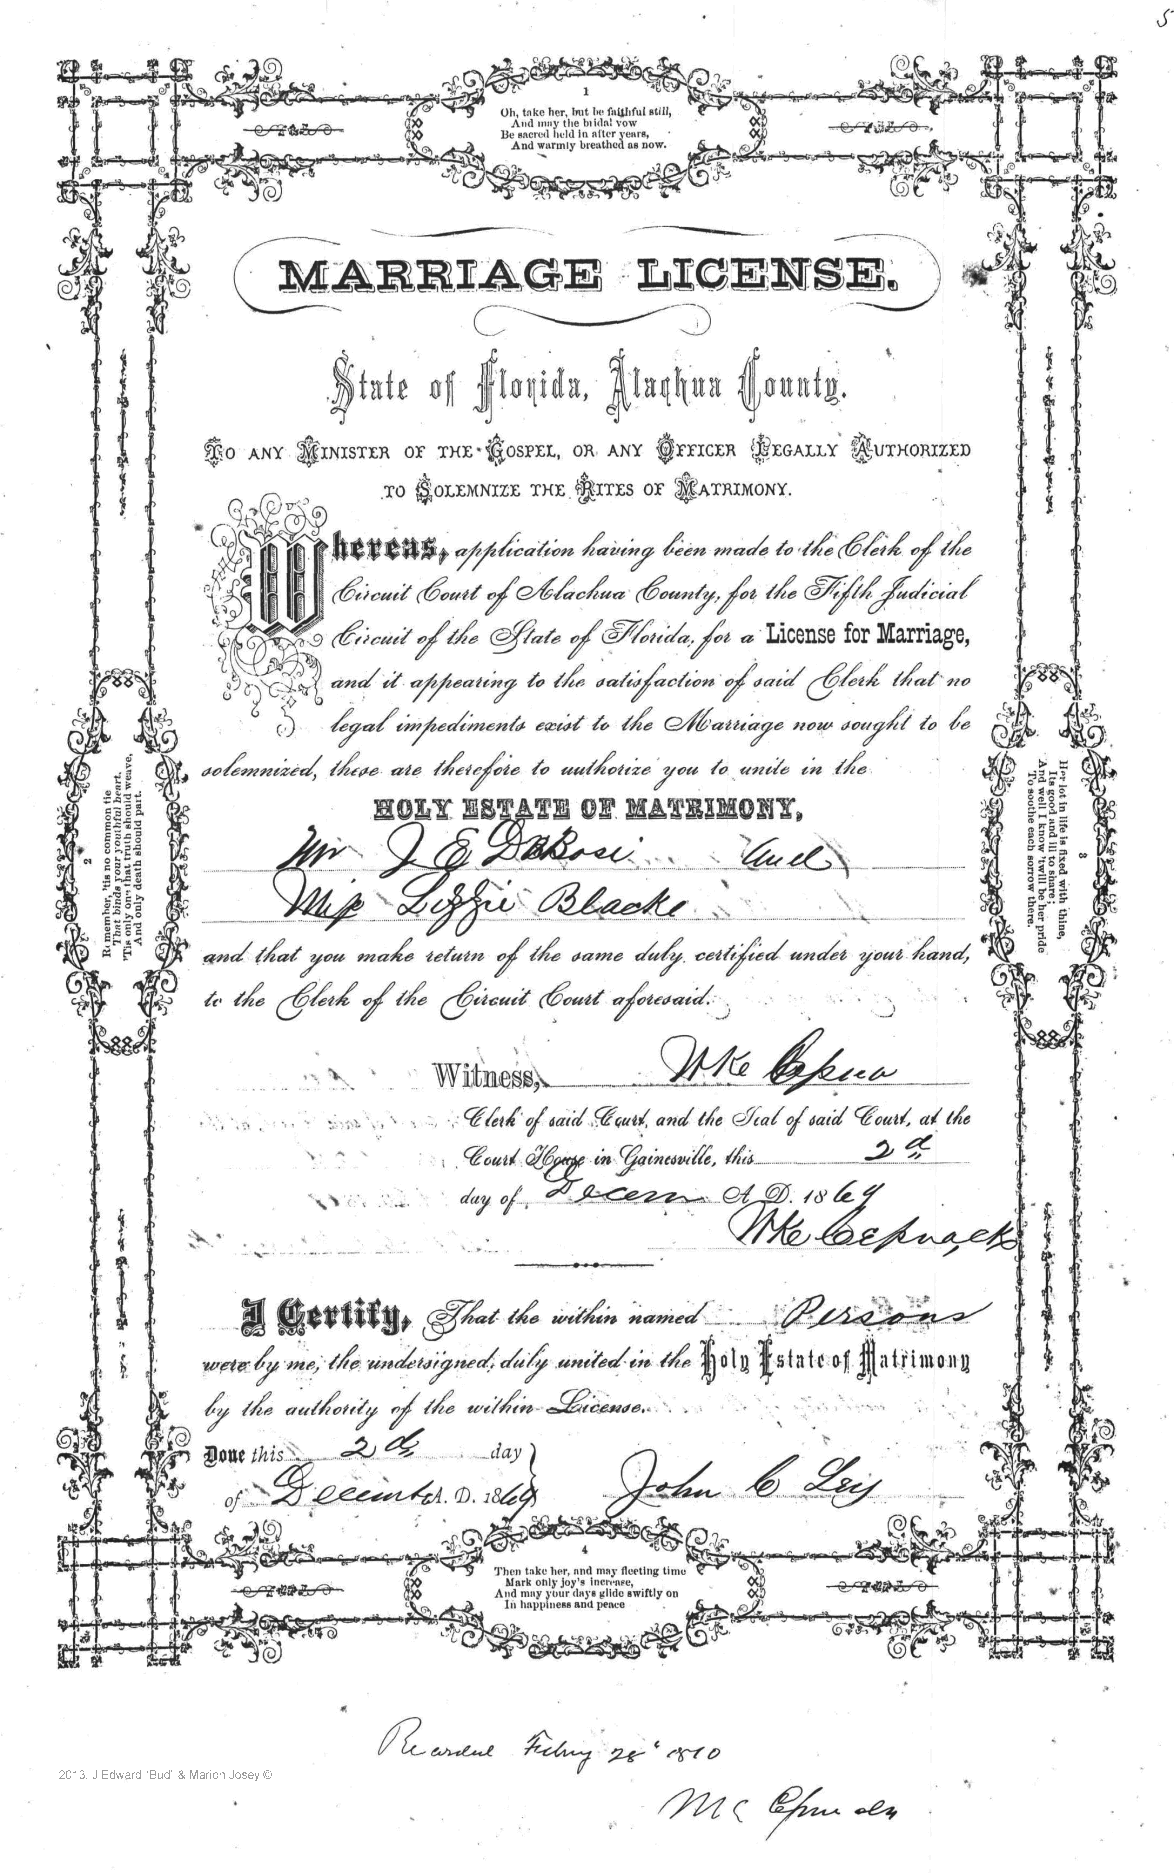 5
1
Oh, take her, but be faithful still,
And may the bridal vow
Be sacred held in after years,
And warmly breathed as now.
MARRIAGE LICENSE.
State of Florida, Alachua County.
TO ANY MINISTER OF THE GOSPEL, OR ANY OFFICER LEGALLY AUTHORIZED
TO SOLEMNIZE THE RITES OF MATRIMONY.
Whereas, application having been made to the Clerk of the
Circuit Court of Alachua County, for the Fifth Judicial
Circuit of the State of Florida, for a License for Marriage,
and it appearing to the satisfaction of said Clerk that no
legal impediments exist to the Marriage now sought to be
solemnized, these are therefore to authorize you to unite in the
HOLY ESTATE OF MATRIMONY,
Mr J E DeBose and
Miss Lizzie Blacke
and that you make return of the same duly certified under your hand,
to the Clerk of the Circuit Court aforesaid.
Witness,
Clerk of said Court, and the Seal of said Court, at the
Court House in Gainesville, this 2d
day of Decem A. D. 1869
I Certify, That the within named Persons
were by me, the undersigned, duly united in the Holy Estate of Matrimony
by the authority of the within License.
Done this 2d day
of December A. D. 1869 John C Ley
2
Remember, 'tis no common tie
That binds your youthful heart,
'Tis only one that truth should weave,
And only death should part.
3
Her lot in life is fixed with thine,
Its good and ill to share;
And well I know 'twill be her pride
To soothe each sorrow there.
4
Then take her, and may fleeting time
Mark only joy's increase,
And may your days glide swiftly on
In happiness and peace
Recorded 28 1870
2013. J Edward 'Bud' & Marion Josey ©